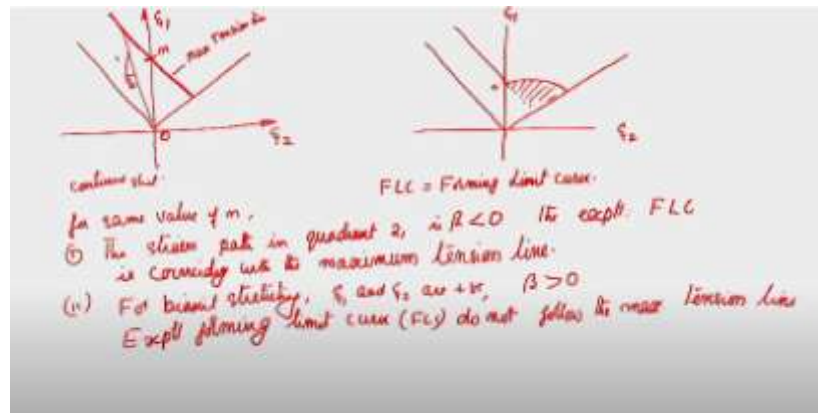 ε₁
max Tension line
m
0
ε₂
ε₁
n
ε₂
continue
FLC = Forming Limit curve.
for same value of n,
(i) The strain path in quadrant 2, is β<0 the exptl. FLC
is coinciding with the maximum tension line.
(ii) For biaxial stretching, ε₁ and ε₂ are +ve, β>0
Exptl forming limit curve (FLC) do not follow the max tension line